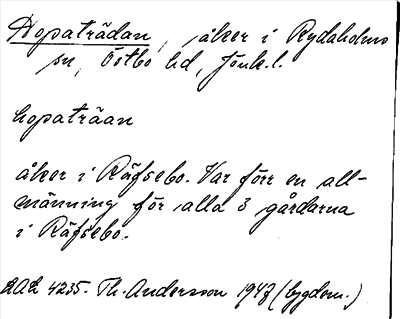 Hopaträdan, åker i Rydaholms
sn, Östbo hd, Jönk. l.
hopaträan
åker i Räfsebo. Var förr en all-
männing för alla 3 gårdarna
i Räfsebo.
ULA 4235. Th. Andersson 1947 (bygdem.)